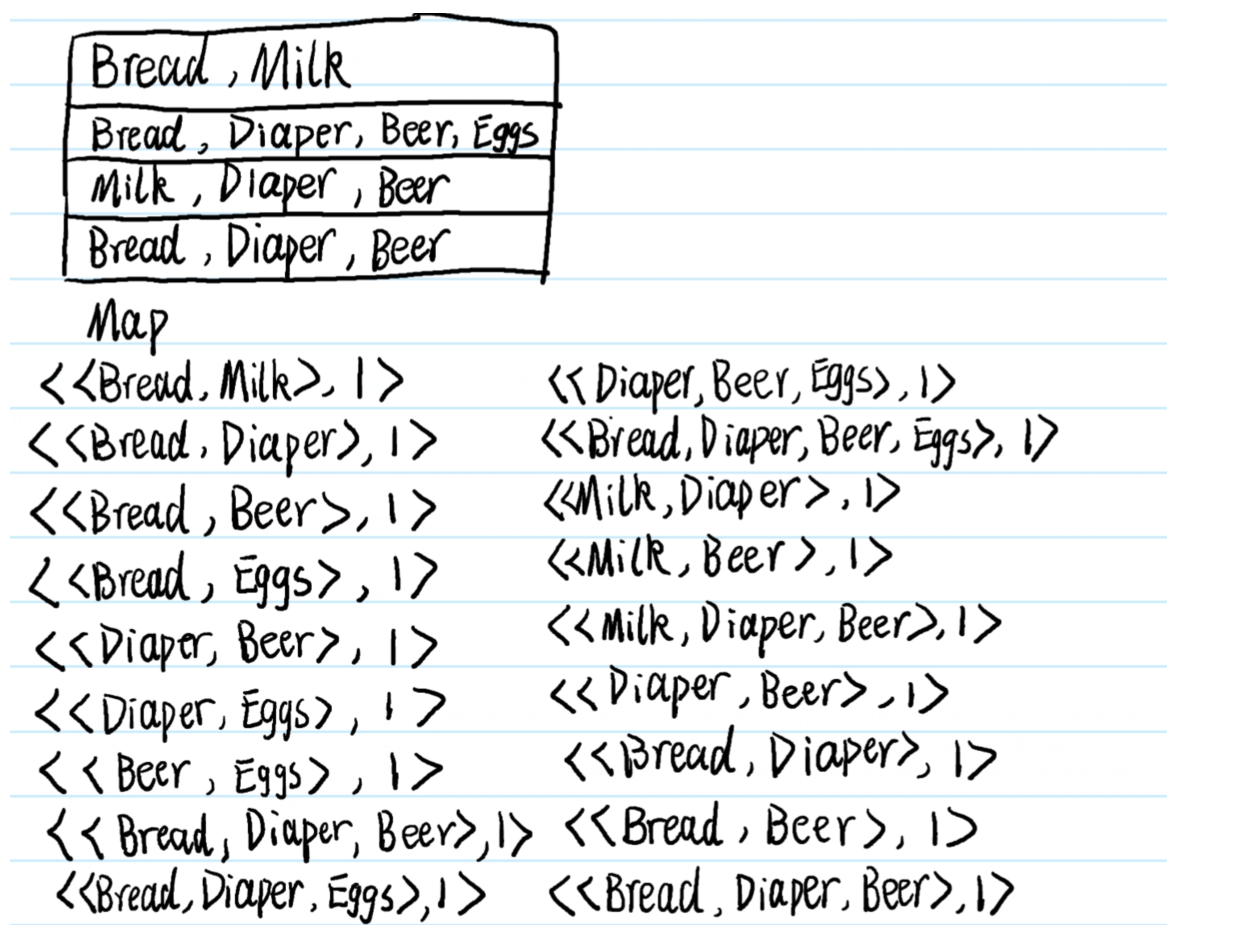 Bread, Milk
Bread, Diaper, Beer, Eggs
Milk, Diaper, Beer
Bread, Diaper, Beer
Map
<<Bread, Milk>, 1>
<<Bread, Diaper>, 1>
<<Bread, Beer>, 1>
<<Bread, Eggs>, 1>
<<Diaper, Beer>, 1>
<<Diaper, Eggs>, 1>
<<Beer, Eggs>, 1>
<<Bread, Diaper, Beer>, 1>
<<Bread, Diaper, Eggs>, 1>
<<Diaper, Beer, Eggs>, 1>
<<Bread, Diaper, Beer, Eggs>, 1>
<<Milk, Diaper>, 1>
<<Milk, Beer>, 1>
<<Milk, Diaper, Beer>, 1>
<<Diaper, Beer>, 1>
<<Bread, Diaper>, 1>
<<Bread, Beer>, 1>
<<Bread, Diaper, Beer>, 1>